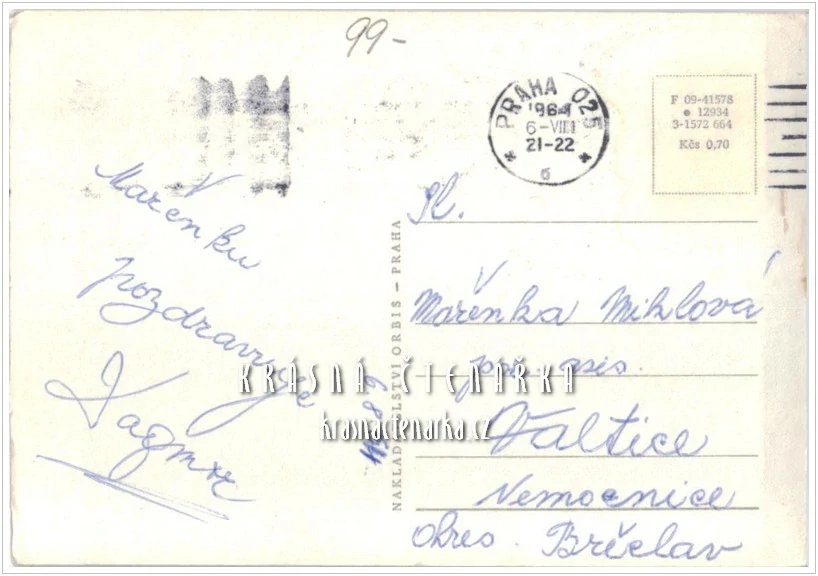 99-
PRAHA 025
'964
6-VIII
21-22
6
F 09-41578
● 12934
3-1572 664
Kčs 0,70
Mařenku
pozdravuje
Dagmar
NAKLADATELSTVÍ ORBIS – PRAHA
Sl.
Mařenka Miklová
Valtice
Nemocnice
Okres. Břeclav
KRÁSNÁ ČTENÁŘKA
krasnactenarka.cz